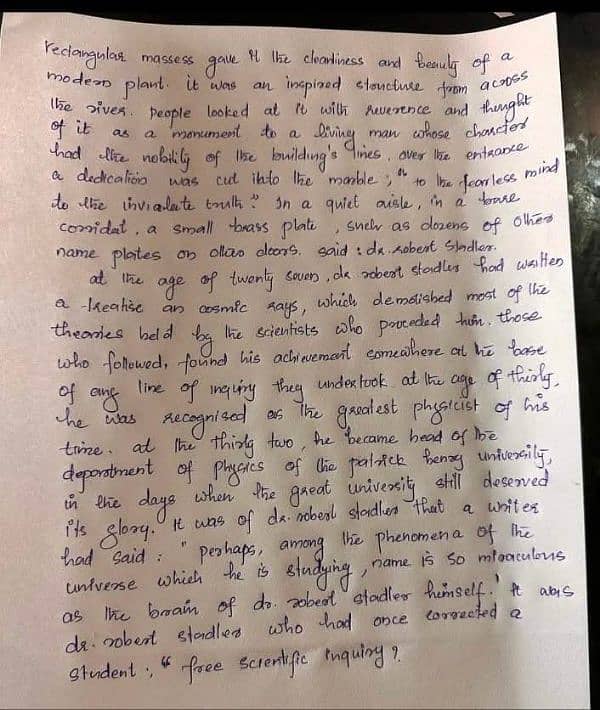 rectangular massess gave it the cleanliness and beauty of a
modern plant. it was an inspired structure from across
the river. people looked at it with reverence and thought
of it as a monument to a living man whose character
had the nobility of the building's lines. over the entrance
a dedication was cut into the marble ; " to the fearless mind
to the inviolate truth." In a quiet aisle, in a bare
corridat, a small brass plate , such as dozens of other
name plates on other doors. said : dr. robert Stadler.
at the age of twenty seven, dr robert stadler had written
a treatise an cosmic rays, which demolished most of the
theories held by the scientists who preceded him. those
who followed, found his achievement somewhere at the base
of any line of inquiry they undertook. at the age of thirty,
he was recognised as the greatest physicist of his
time. at the thirty two, he became head of the
department of Physics of the patrick henry university,
in the days when the great university still deserved
its glory. It was of dr. robert stadler that a writer
had said : " perhaps, among the phenomena of the
universe which he is studying, name is so miraculous
as the brain of dr. robert stadler himself.' It was
dr. robert stadler who had once corrected a
student :, " free scientific inquiry?